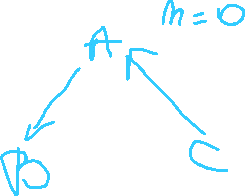 m = 0
A
B
C